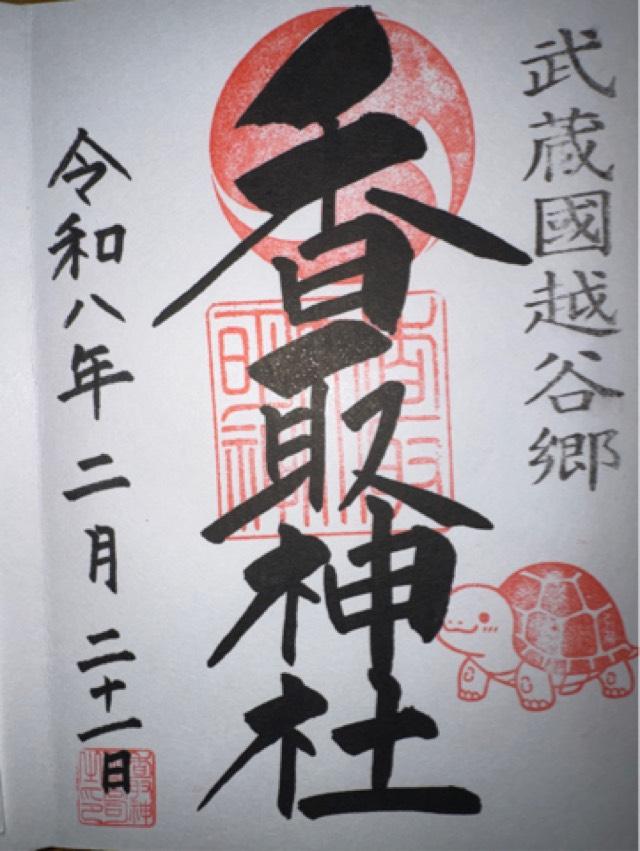 武蔵國越谷郷
香取神社
令和八年二月二十一日